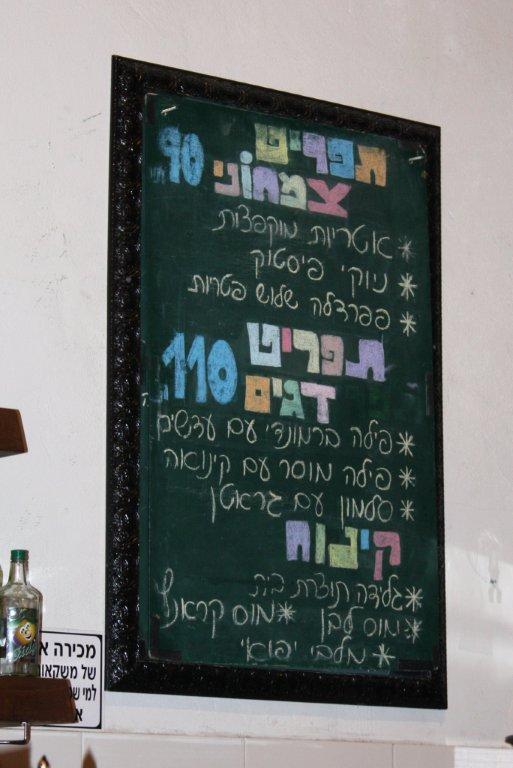 תפריט
צמחוני 90
* אטריות מוקפצות
* ניוקי פיסטוק
* פפרדלה שלוש פטריות
תפריט
דגים 110
* פילה ברמונדי עם עדשים
* פילה מוסר עם קינואה
* סלמון עם גראטן
קינוח
* גלידה תוצרת בית
* מוס לבן * מוס קראנץ
* מלבי יפואי
מכירה א
של משקאו
למי ש
א